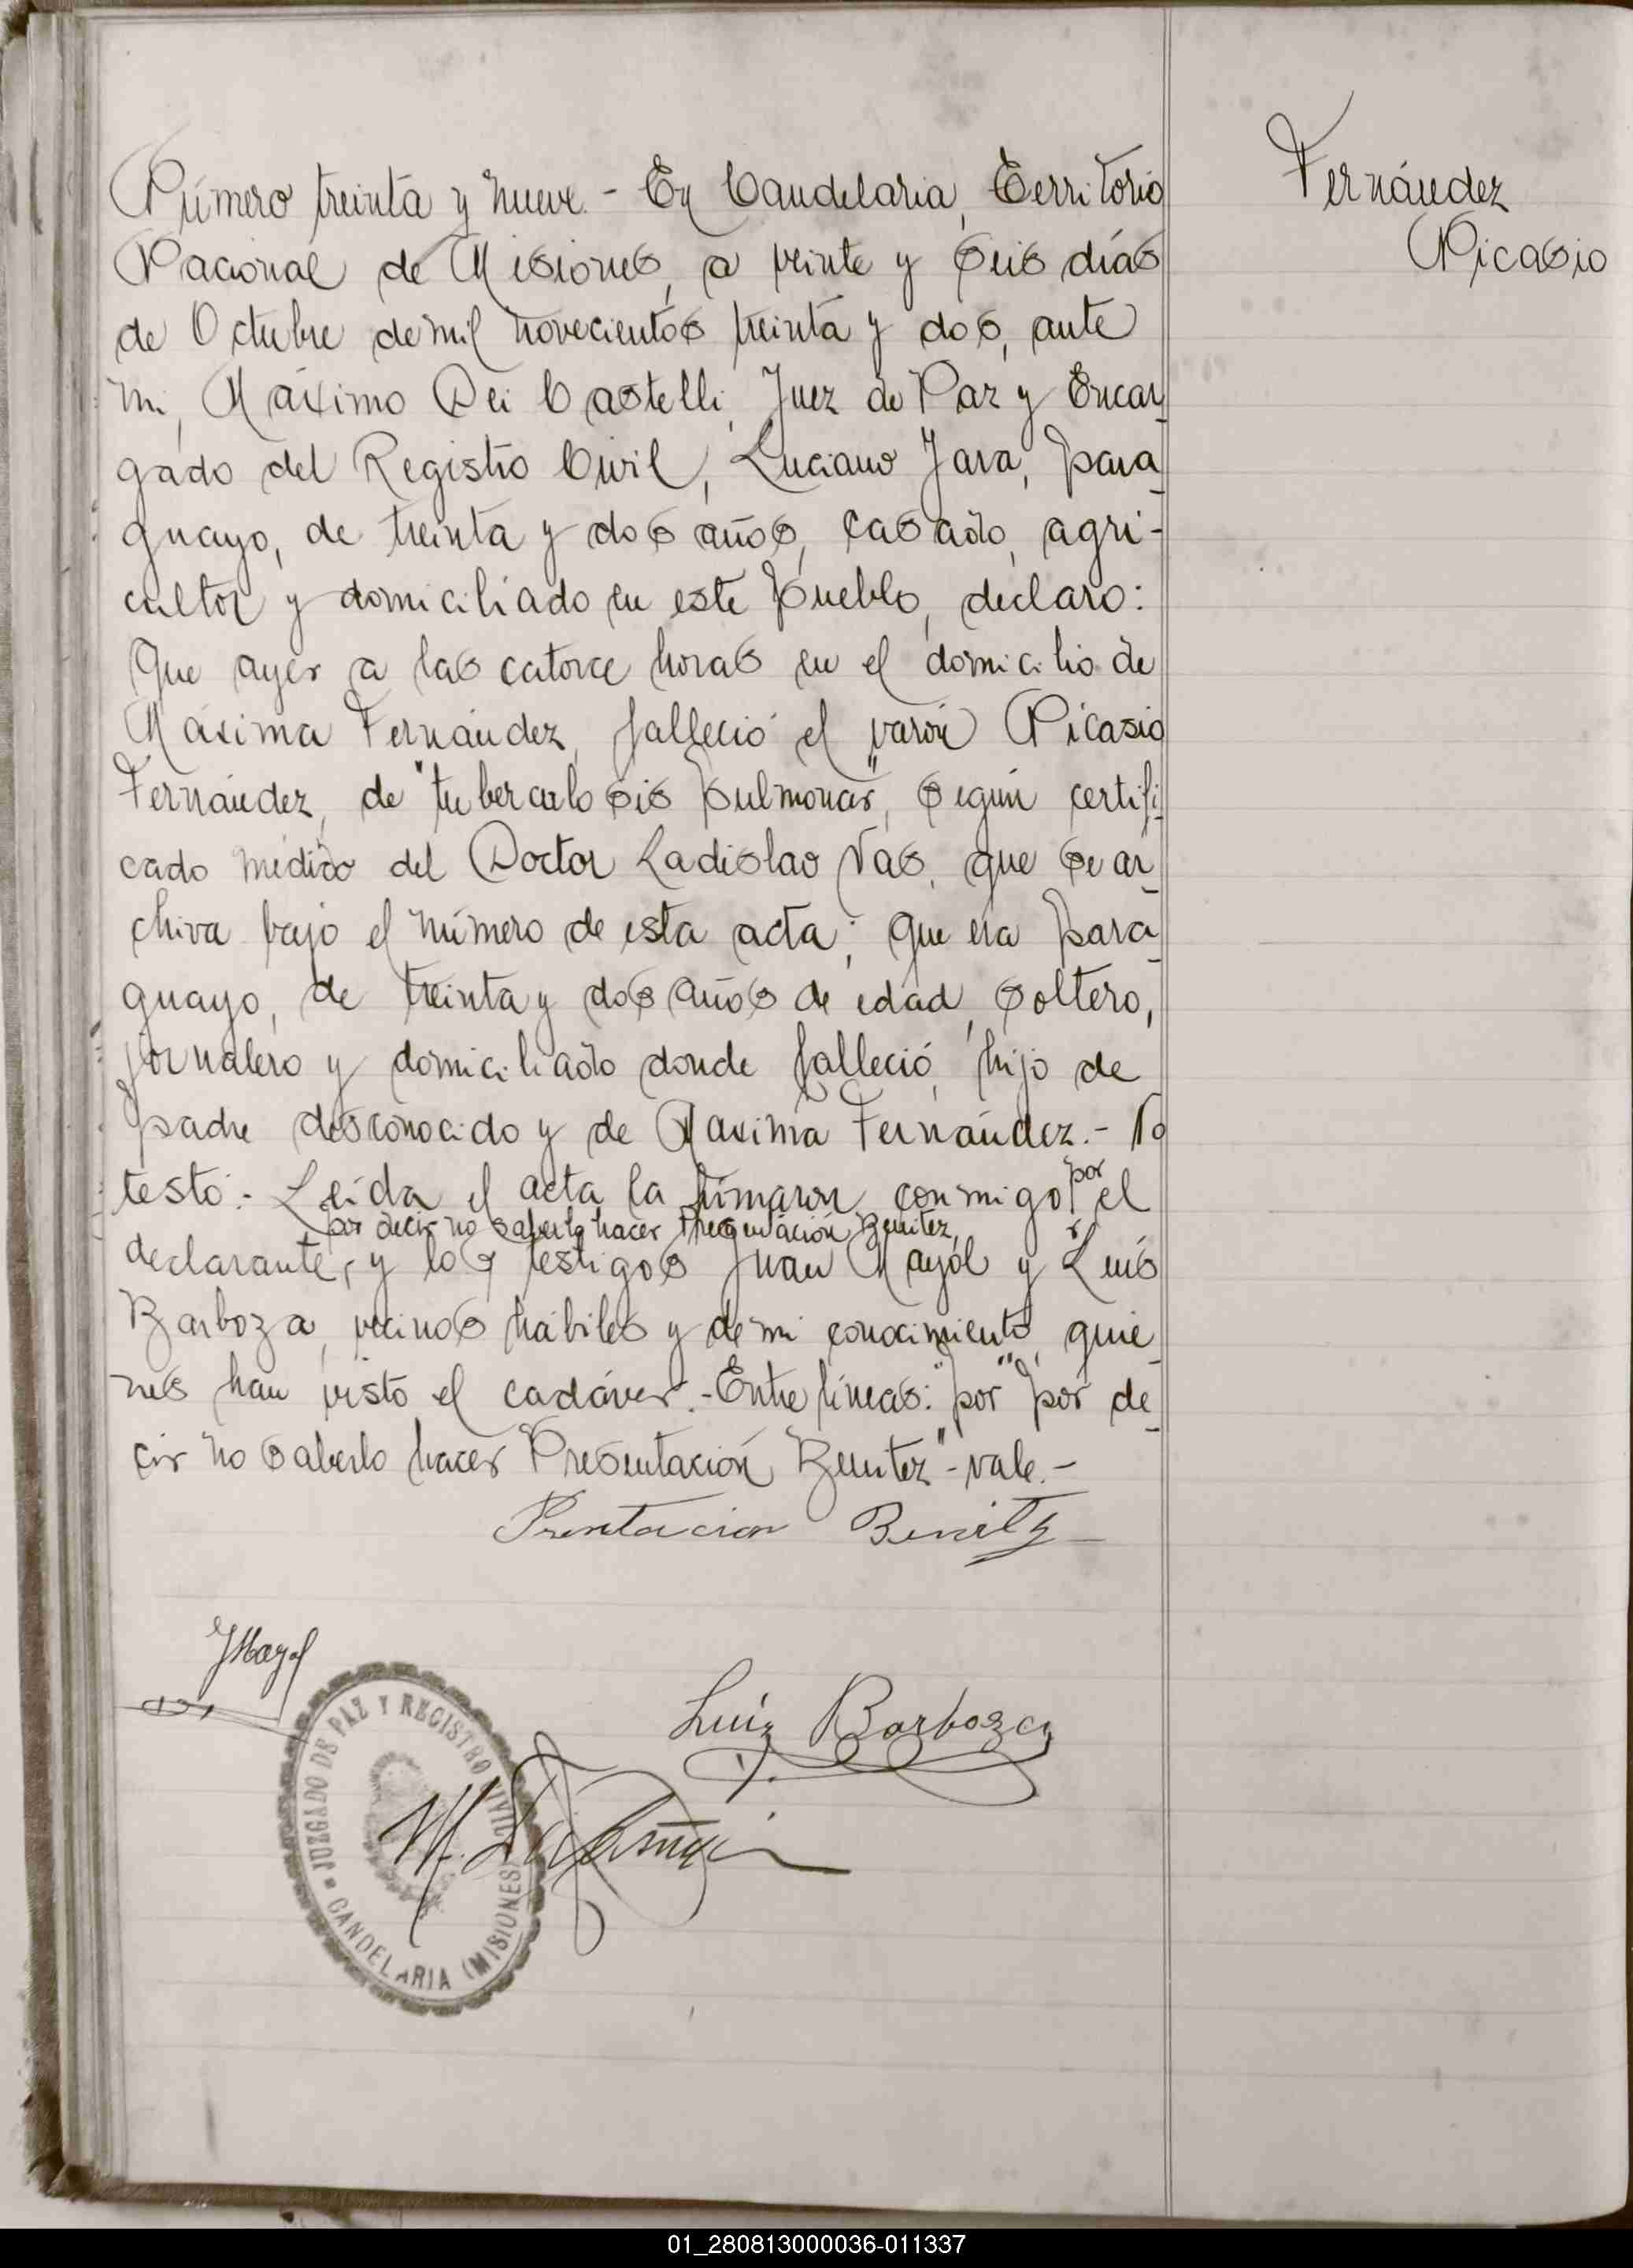 Número treinta y nueve. - En Candelaria, Territorio
Nacional de Misiones, a veinte y seis días
de Octubre de mil novecientos treinta y dos, ante
mi, Máximo Dei Castelli, Juez de Paz y Encar-
gado del Registro Civil, Luciano Jara, para-
guayo, de treinta y dos años, casado, agri-
cultor y domiciliado en este pueblo, declaro:
Que ayer a las catorce horas en el domicilio de
Máxima Fernández, falleció el varón Nicasio
Fernández, de "tuberculosis pulmonar", según certifi-
cado médico del Doctor Ladislao Vas, que se ar-
chiva bajo el número de esta acta; que era para-
guayo, de treinta y dos años de edad, soltero,
jornalero y domiciliado donde falleció, hijo de
padre desconocido y de Maxima Fernández. - No
testó. - Leída el acta la firmaron conmigo, por el
declarante, por decir no saberlo hacer Presentación Benitez, y los testigos Juan Mayol y Luís
Barboza, vecinos hábiles y de mi conocimiento, quie-
nes han visto el cadáver. - Entre líneas: "por" "por de-
cir no saberlo hacer Presentación Benitez" - vale. -
Fernández
Nicasio
Prentacion Benitz
JMayol
Luiz Barboza
JUZGADO DE PAZ Y REGISTRO CIVIL
CANDELARIA (MISIONES)
01_280813000036-011337